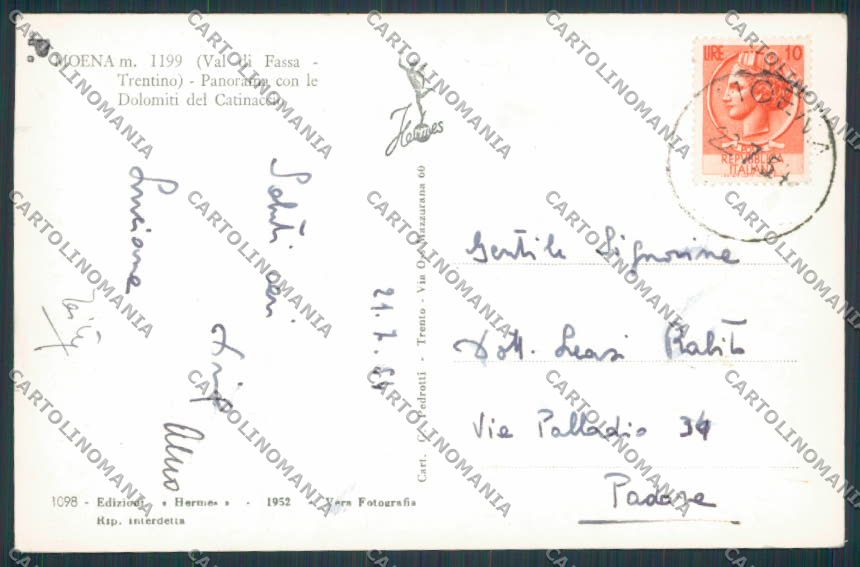 MOENA m. 1199 (Val di Fassa -
Trentino) - Panorama con le
Dolomiti del Catinaccio
Hermes
LIRE 10
REPVBBLICA
ITALIANA
Saluti cari
Luciana
21.7.54
Cart. G. Pedrotti - Trento - Via O. Mazzurana 60
Gentile Signorina
Dott. Leasi Rabito
Via Palladio 34
Padova
1098 - Edizioni « Hermes » - 1952 - Vera Fotografia
Rip. interdetta
CARTOLINOMANIA